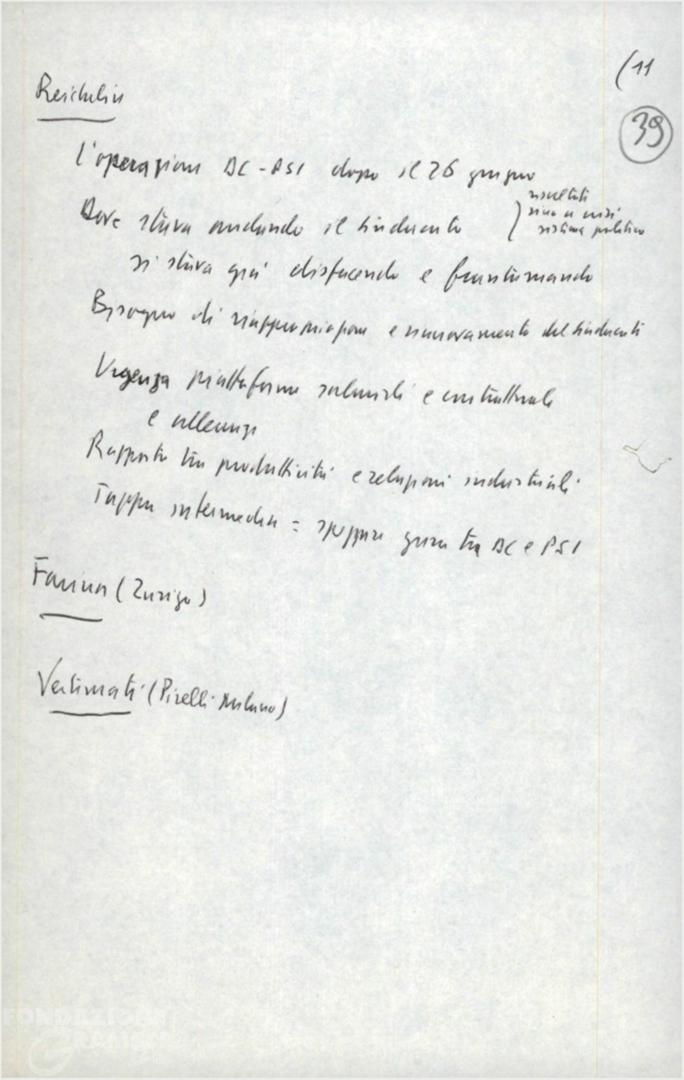 (11
39
Reichlin
L'operazione DC-PSI dopo il 26 giugno
risultati
sino a crisi
sistema politico
Dove stava andando il sindacato
si stava già disfacendo e frantumando
Bisogno di riappropriazione e rinnovamento del sindacato
Urgenza piattaforme salariali e contrattuali
e alleanze
Rapporto tra produttività e relazioni industriali
Tappa intermedia = giunte tra DC e PSI
Farina (Zurigo)
Vertimati (Pirelli Milano)
FONDAZIONE
GRAMSCI